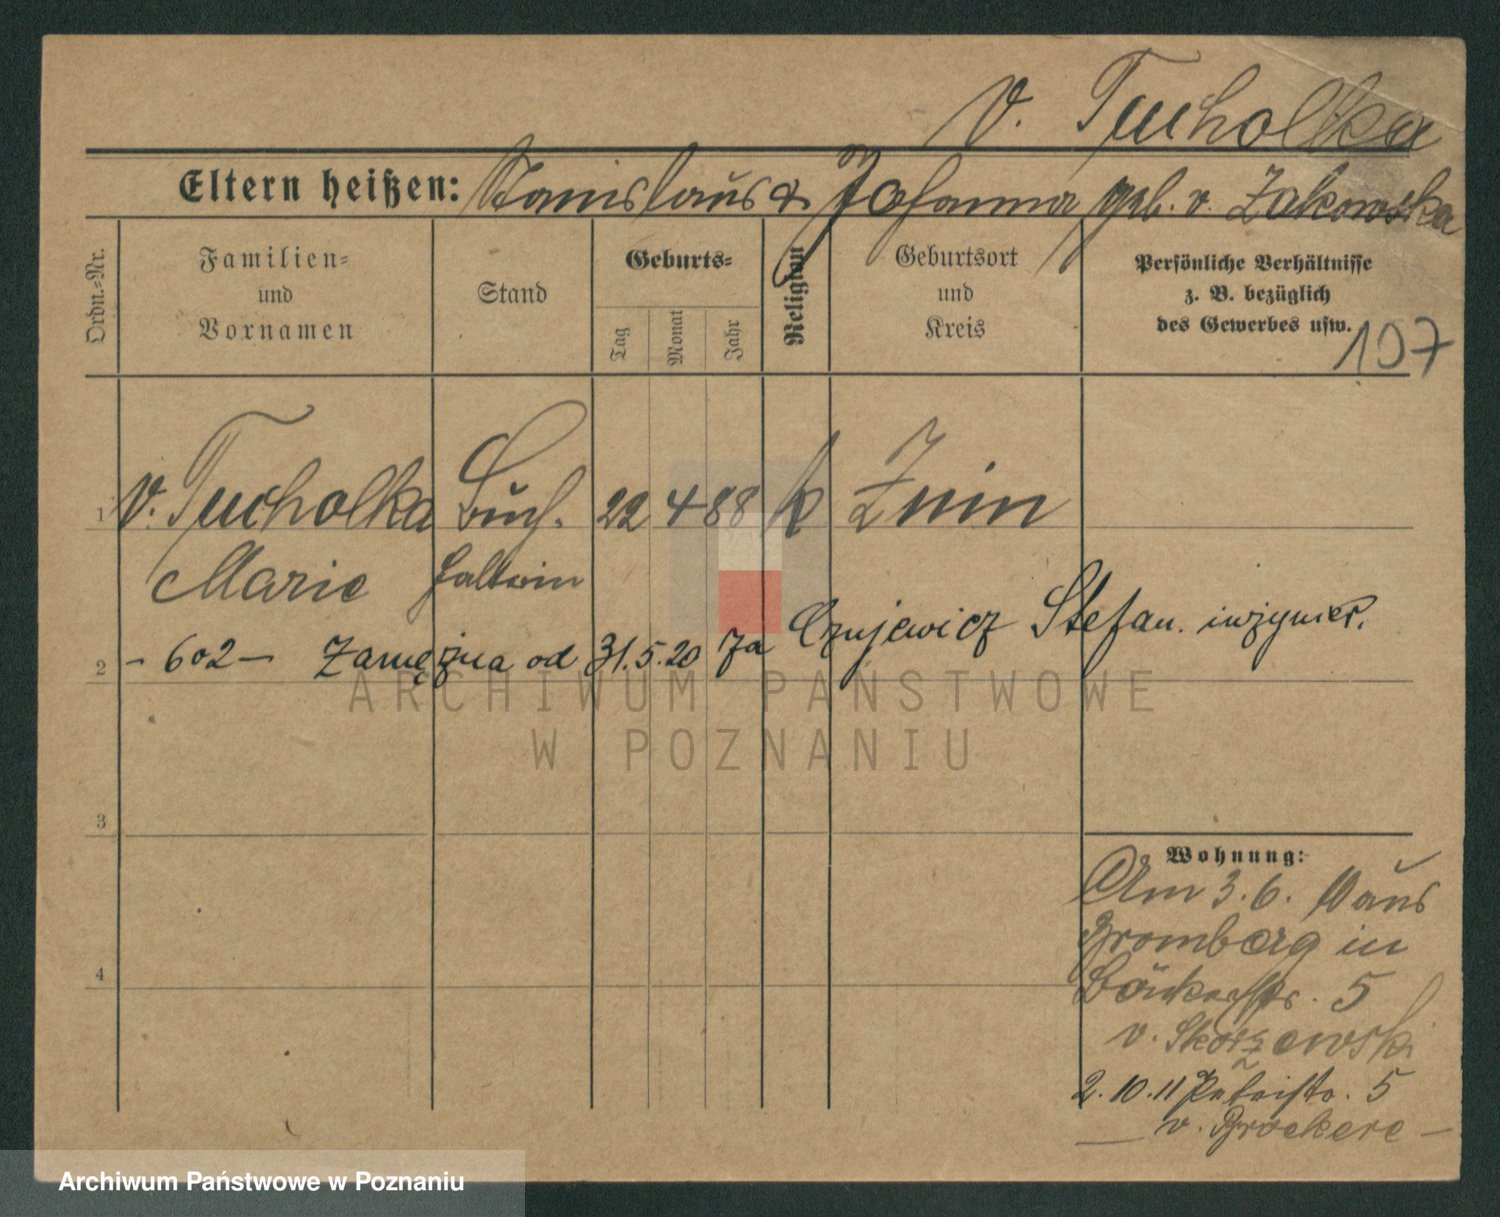 v. Tucholka
Eltern heißen: Stanislaus & Johanna geb. v. Zakowska
Ordn.-Nr.
Familien-
und
Vornamen
Stand
Geburts-
Tag
Monat
Jahr
Religion
Geburtsort
und
Kreis
Persönliche Verhältnisse
z. B. bezüglich
des Gewerbes usw.
107
1 v. Tucholka Buch- 22 4 88 k Znin
Marie halterin
2 - 602 - Zamężna od 31.5.20 za Czujewicz Stefan. inżynier.
ARCHIWUM PAŃSTWOWE
W POZNANIU
3
Wohnung:
Am 3.6. aus
Bromberg in
Bäckerstr. 5
v. Skorzewski
4
2.10.11 Petristr. 5
v. Brockere
Archiwum Państwowe w Poznaniu